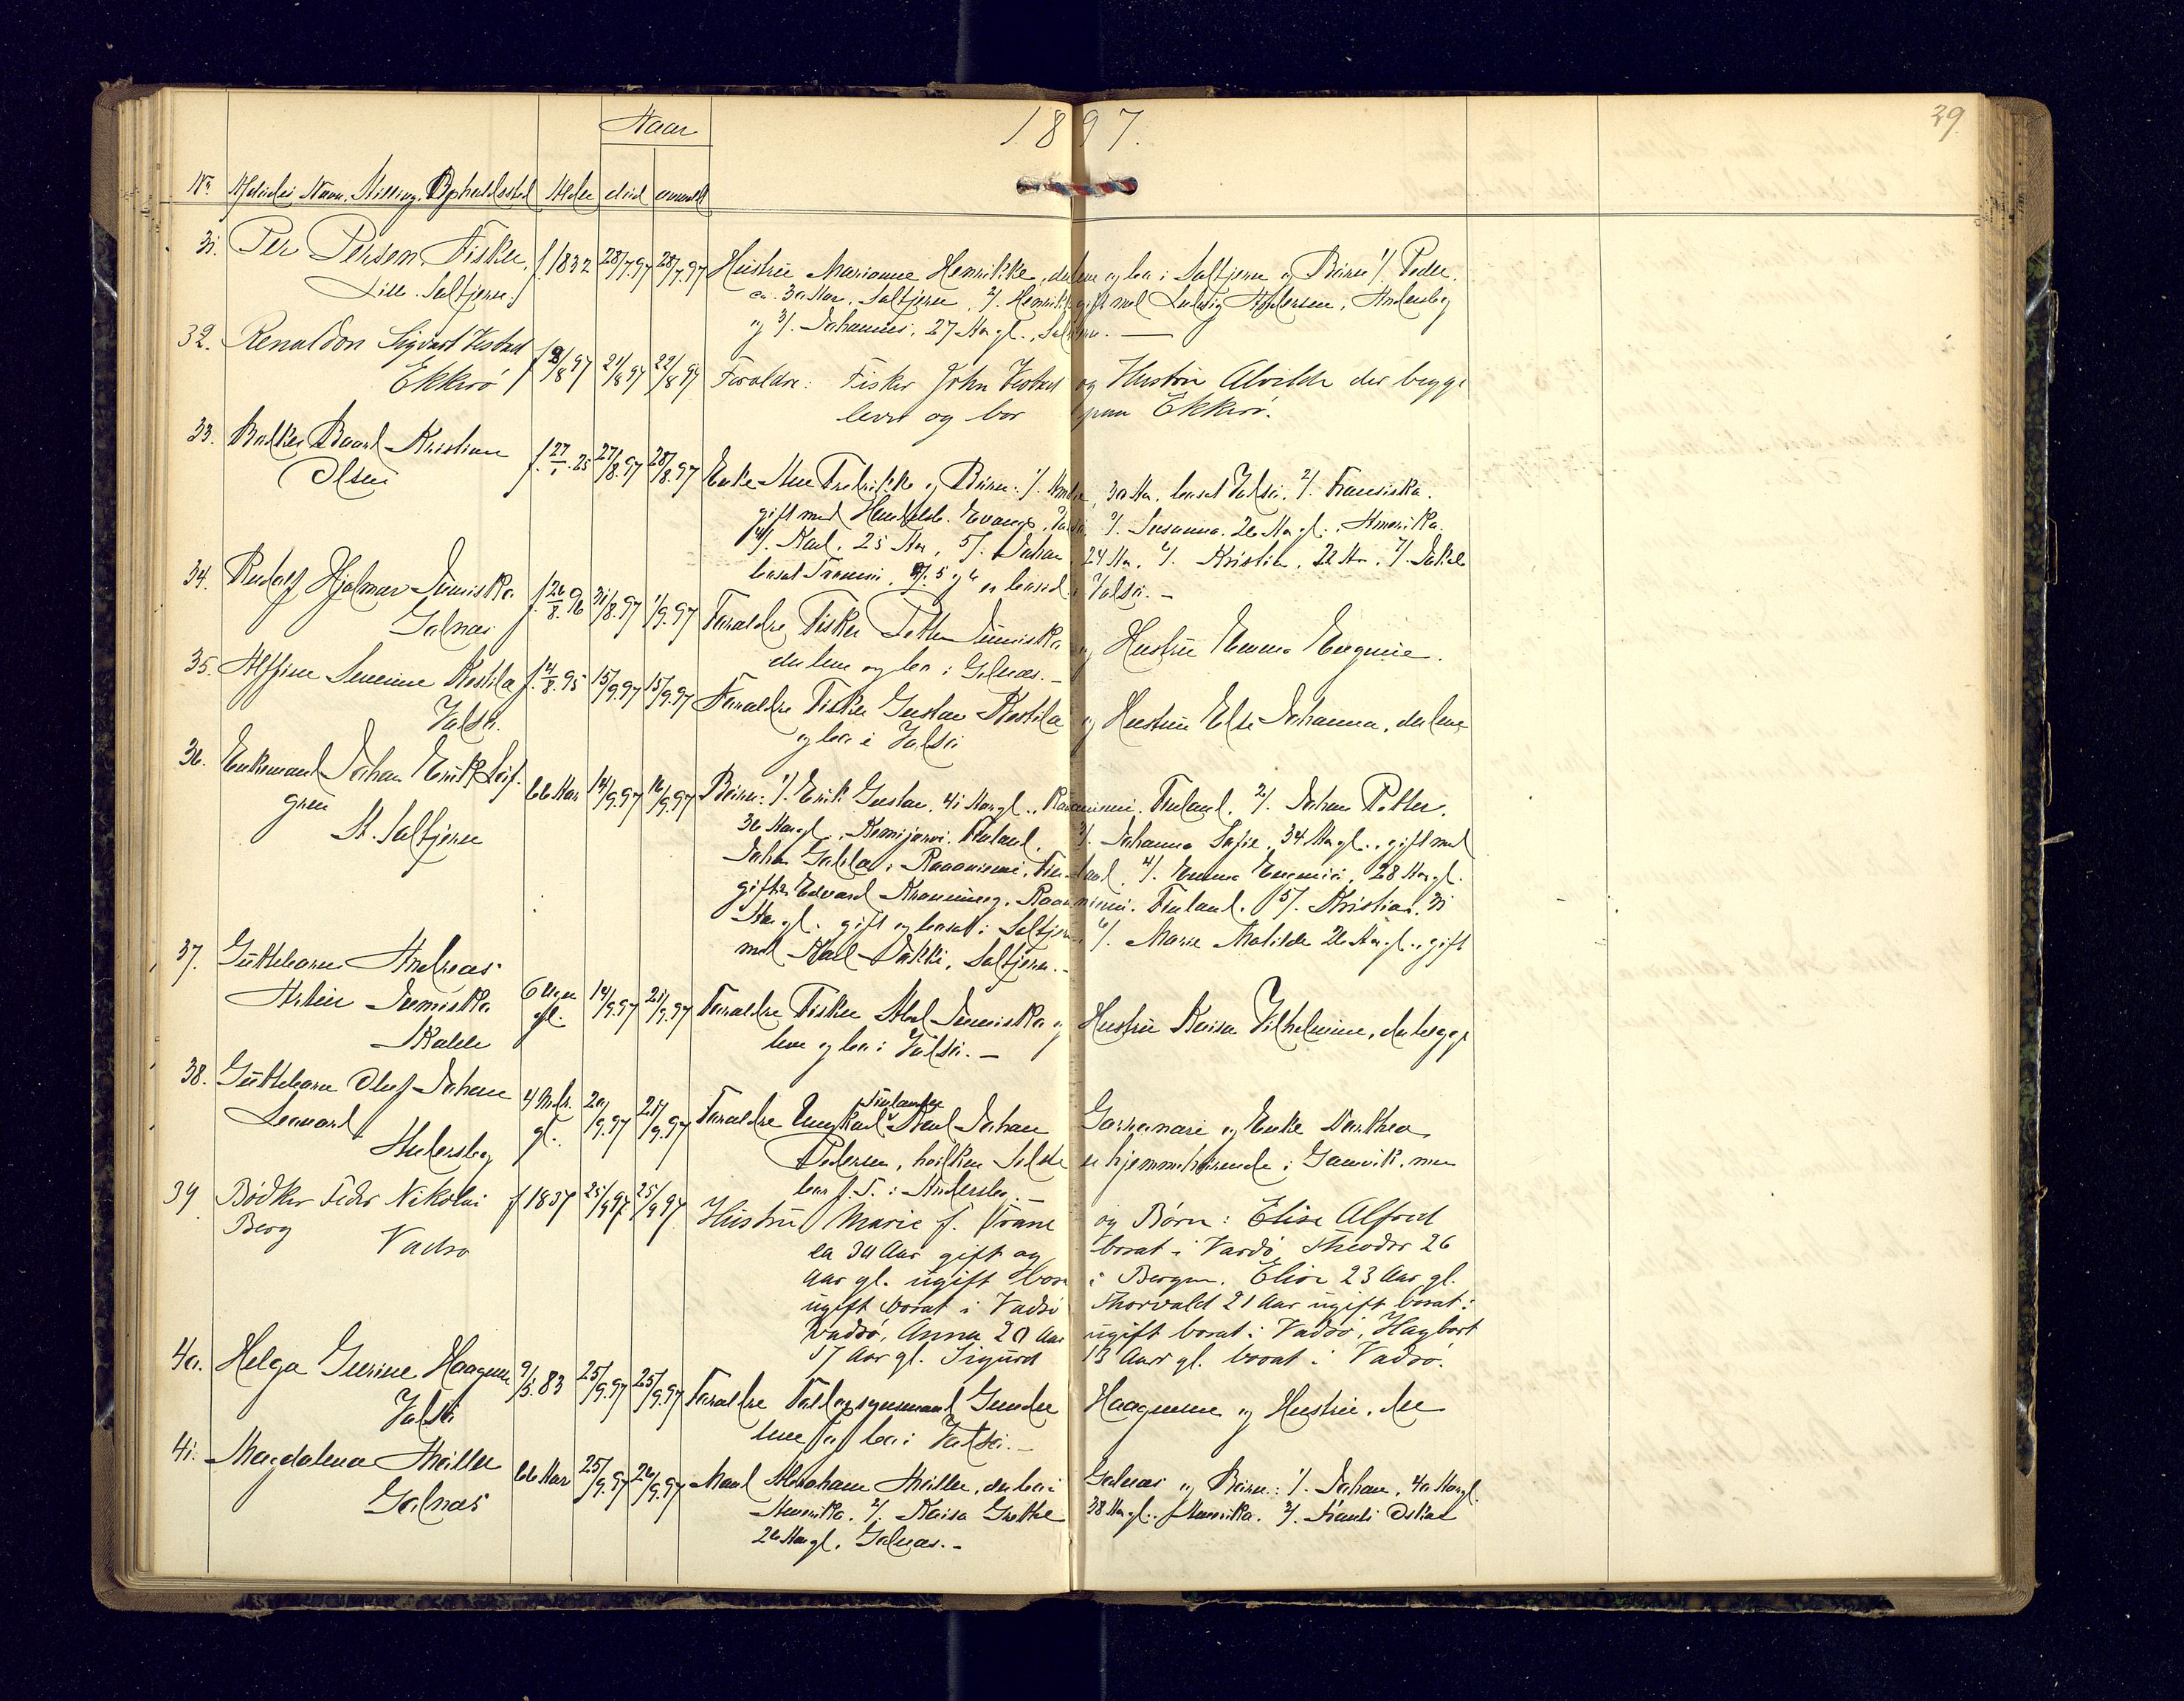 1897.
29
Naar
No. Afdødes Navn, Stilling, Opholdssted Alder død anmeldt
31. Per Persen, Fisker, f. 1832 28/7.97 28/7.97 Hustru Marianne Henrikke, der leve og bor i Saltjern og Børn 1/. Peder.
Lille Saltjern.
ca. 30 Aar, Saltjern, 2/. Henrikke gift med Ludvig Andersen, Andersby
og 3/. Johannes, 27 Aar gl., Saltjern.
32. Renaldon Sigvart Vestad f 2/8 97 21/8 97 22/8 97 Foraldre: Fisker John Vestad og Hustru Alvilde der begge
Ekkerö
lever og bor paa Ekkerö.
33. Kristian f. 27/1. 25 27/8.97 28/8.97 Enke Ane Fredrikke og Børn: 1/. 30 Aar, bosat Vadsö, 2/. Fransiska.
Olsen
gift med Evanes, Vadsö 3/. Susanna. 26 Aar gl., Amerika.
4/. Karl, 25 Aar, 5/. Johan 24 Aar, 6/. Kristian, 22 Aar, 7/. Jakob
bosat Tromsö, 5 og 6 er bosad i Vadsö. -
34. Rudolf Hjalmar Junniska f. 26/8. 96 31/8.97 1/9.97 Foraldre Fisker Petter Junniska og Hustru Emma Eugenie.
Golnæs
der leve og bor i Golnæs. -
35. Alfine Severine Kostila f. 4/8. 95 15/9.97 15/9.97 Foraldre Fisker Gustav Kostila og Hustru Else Johanna, der leve
Vadsö.
og bor i Vadsö
36. Enkemand Johan Erik
66 Aar 14/9.97 16/9.97 Børn: 1/. Erik Gustav, 41 Aar gl., Rovaniemi, Finland, 2/. Johan Petter,
gren
St. Saltjern
36 Aar gl., Kemijarvi, Finland, 3/. Johanna Sofie, 34 Aar gl., gift med
Johan i Rovaniemi, Finland, 4/. Emma Eugenie, 28 Aar gl.
gift m Edvard Rovaniemi, Finland. 5/. Kristian, 31
Aar gl. gift og bosat i Saltjern 6/. Marie Matilde 26 Aar gl., gift
med Karl Jakki, Saltjern. -
37. Guttebarn Andreas
Artin Junniska 6 Uger gl. 14/9.97 21/9.97 Foraldre Fisker Abel Junniska og Hustru Kaisa Vilhelmine, der begge
leve og bor i Vadsö. -
38. Guttebarn Oluf Johan 4 Mdr. gl. 20/9.97 21/9.97 Foraldre Ungkarl Finlander Karl Johan og Enke Dorthea
Leonard
Andersby
Pedersen, hvilken Sidste er hjemmehørende i Gamvik, men
bor p. T. i Andersby. -
39. Bödker Peder Nikolai f 1837 25/9 97 25/9 97 Hustru Marie f. og Børn: Elise Alfred
Berg
Vadsö
ca 30 Aar gift og bosat i Vardö, Theodor 26
Aar gl. ugift bosat i Bergen. Elise 23 Aar gl.
ugift bosat i Vadsö Thorvald 21 Aar ugift bosat i
Vadsö, Anna 20 Aar ugift bosat i Vadsö, Hagbart
17 Aar gl. Sigurd 13 Aar gl. bosat i Vadsö.
40. Helga Gurine Haagensen 9/5. 83 25/9.97 25/9.97 Foraldre Gunder Haagensen og Hustru, der
Vadsö
leve og bor i Vadsö. -
41. Magdalena Møller 66 Aar 25/9.97 26/9.97 Mand Abraham Møller, der bor i Golnæs og Børn: 1/. Johan, 40 Aar gl.
Golnæs
Amerika. 2/. Kaisa Grethe 38 Aar gl., Amerika. 3/.
26 Aar gl., Golnæs. -